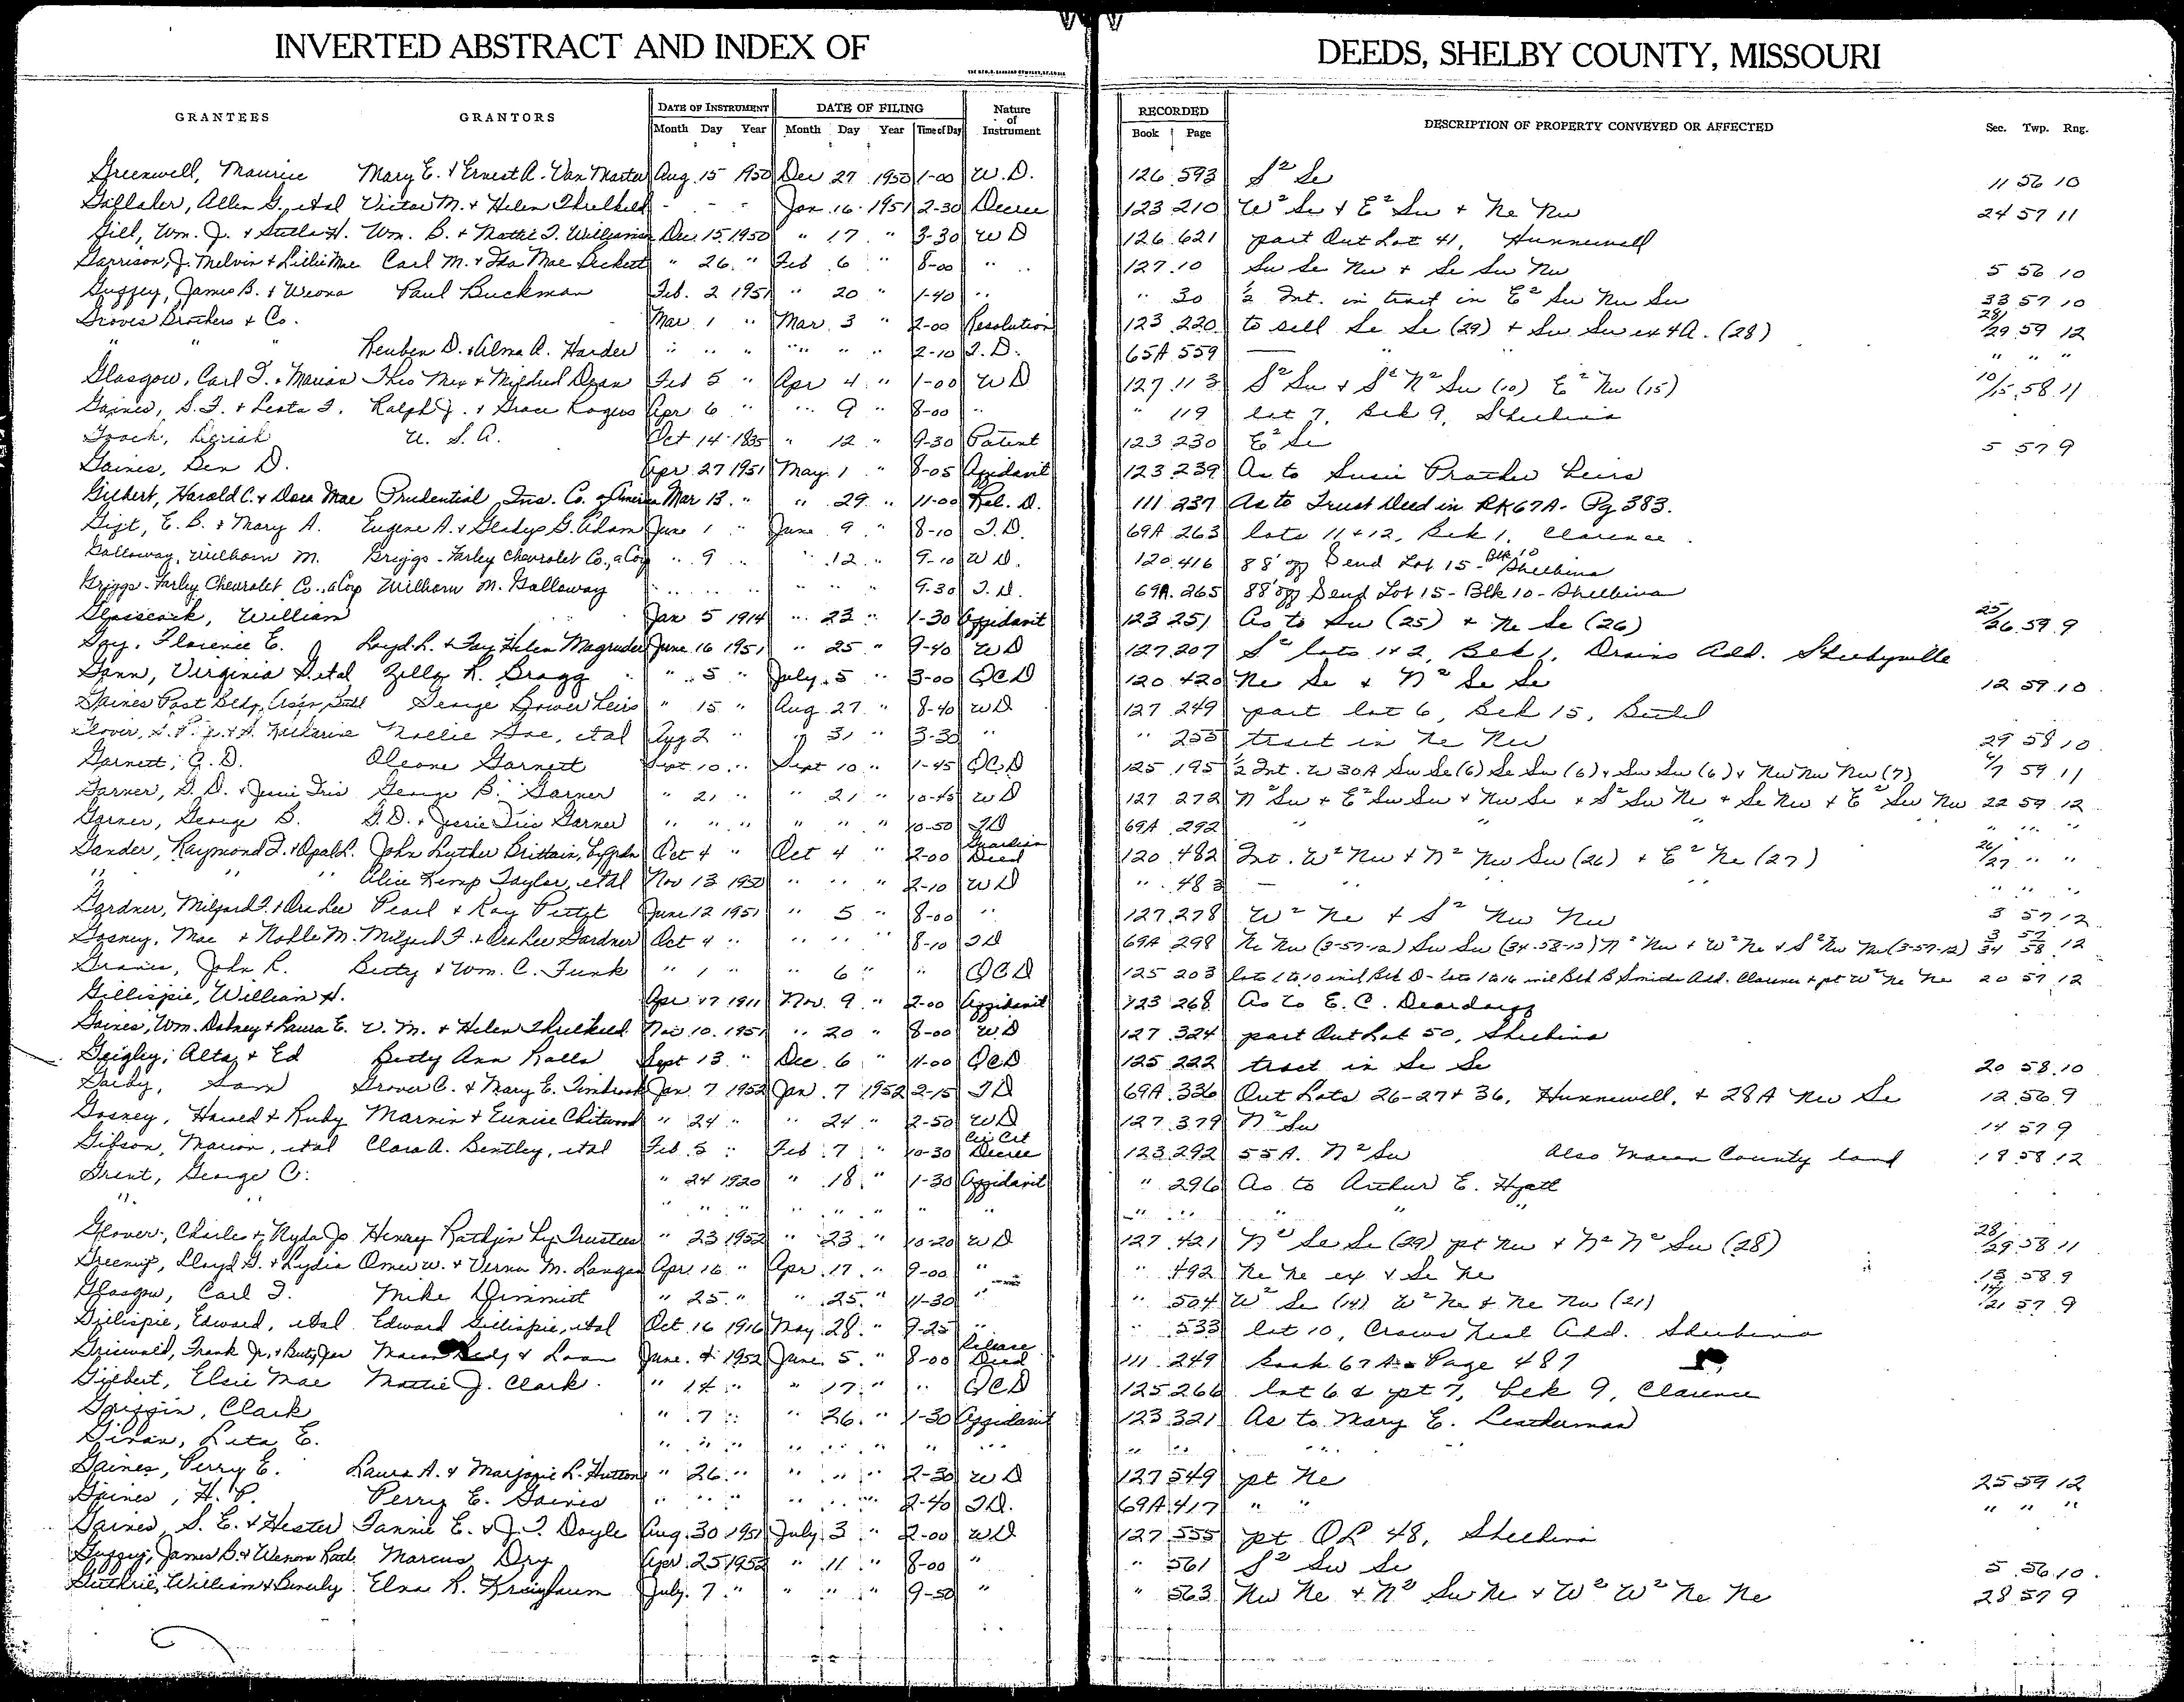 INVERTED ABSTRACT AND INDEX OF DEEDS, SHELBY COUNTY, MISSOURI
GRANTEES GRANTORS DATE OF INSTRUMENT DATE OF FILING Nature of Instrument RECORDED DESCRIPTION OF PROPERTY CONVEYED OR AFFECTED Sec. Twp. Rng.
Month Day Year Month Day Year Time of Day Book Page
Greenwell, Maurice Mary E. & Ernest A. Van Marter Aug. 15 1950 Dec 27 1950 1-00 W.D. 126 593 S² Se 11 56 10
Gallaher, Allen G., etal Victor M. & Helen Threlkeld - - - Jan 16 1951 2-30 Decree 123 210 W² Se & E² Sw + Ne Nw 24 57 11
Gill, Wm. J. & Stella H. Wm. B. & Mattie T. Dec. 15 1950 " 17 " 3-30 W D 126 621 part Out Lot 41, Hunnewell
Garrison, J. Melvin & Lillie Mae Carl M. & Ida Mae " 26 " Feb 6 " 8-00 " 127 10 Sw Se Nw + Se Sw Nw 5 56 10
Guzzey, James B. & Weona Paul Buckman Feb. 2 1951 " 20 " 1-40 " " 30 ½ Int. in tract in E² Sw Nw Sw 33 57 10
Groves Brothers & Co. Mar 1 " Mar. 3 " 2-00 Resolution 123 220 to sell Se Se (29) + Sw Sw ex 4A. (28) 28/29 59 12
" " " Reuben D. & Alma A. Harder " " " " " " 2-10 T.D. 65A 559 — " " " " "
Glasgow, Carl T. & Marian Theo Mex & Mildred Feb 5 " Apr 4 " 1-00 W D 127 113 S² Sw & S² N² Sw (10) E² Nw (15) 10/15 58 11
Gaines, S. F. & Leota F. Ralph J. & Grace Rogers Apr 6 " " 9 " 8-00 " " 119 lot 7, Blk 9, Shelbina
U. S. A. Oct 14 1835 " 12 " 9-30 Patent 123 230 E² Se 5 57 9
Gaines, Ben D. Apr 27 1951 May 1 " 8-05 Affidavit 123 239 As to Susie Prather heirs
Gilbert, Harold C. & Dora Mae Prudential Ins. Co. of America Mar 13 " " 29 " 11-00 Rel. D. 111 237 As to Trust Deed in BK 67A - Pg 383.
Gift, E. B. & Mary A. Eugene A. & Gladys G. Adam June 1 " June 9 " 8-10 T.D. 69A 263 lots 11 + 12, Blk 1, Clarence
Galloway, Wilhorn M. Briggs-Farley Chevrolet Co., a Corp " 9 " " 12 " 9-10 W D. 120 416 88' off S end Lot 15 - Blk 10 Shelbina
Griggs-Farley Chevrolet Co., a Corp Wilhorn M. Galloway " " " " " " 9-30 T.D. 69A 265 88' off S end Lot 15 - Blk 10 - Shelbina
Glasscock, William Jan 5 1914 " 23 " 1-30 Affidavit 123 251 As to Sw (25) + Ne Se (26) 25/26 59 9
Gay, Florence E. Loyd L. & Fay Helen Magruder June 16 1951 " 25 " 9-40 W D 127 207 S² lots 1 + 2, Blk 1, Drains Add. Shelbyville
Gann, Virginia S. etal Zella K. Bragg " 5 " July 5 " 3-00 QCD 120 420 Ne Se & N² Se Se 12 59 10
Gaines Post Bldg. Ass'n, Bethel George Bower heirs " 15 " Aug 27 " 8-40 WD 127 249 part lot 6, Blk 15, Bethel
Glover, Nollie etal Aug 2 " " 31 " 3-30 " " 255 tract in Ne Nw 29 58 10
Garnett, A. D. Oleone Garnett Sept 10 " Sept 10 " 1-45 QCD 125 195 ½ Int. W 30A Sw Se (6) Se Sw (6) & Sw Sw (6) & Nw Nw Nw (7) 6/7 59 11
Garner, G. D. & Jessie Iris George B. Garner " 21 " " 21 " 10-45 WD 127 272 N² Sw + E² Sw Sw + Nw Se + S² Sw Ne + Se Nw + E² Sw Nw 22 59 12
Garner, George B. G. D. & Jessie Iris Garner " " " " " " 10-50 TD 69A 292 " " " " "
Gander, Raymond F. & Opal L. John Luther Brittain, by gdn Oct 4 " Oct 4 " 2-00 Guardian Deed 120 482 Int. W² Nw & N² Nw Sw (26) + E² Ne (27) 26/27 " "
" " " Alice Kemp Taylor, etal Nov 13 1950 " " " 2-10 WD " 483 — " " " " "
Gardner, Milford F. & Ora Lee Pearl & Ray June 12 1951 " 5 " 8-00 " 127 278 W² Ne & S² Nw Nw 3 57 12
Gosney, Mae & Noble M. Milford F. & Ora Lee Gardner Oct 4 " " " " 8-10 TD 69A 298 Ne Nw (3-57-12) Sw Sw (34-58-12) N² Nw & W² Ne & S² Nw Nw (3-57-12) 3/34 57/58 12
John R. Betty & Wm. C. Funk " 1 " " 6 " " QCD 125 203 lots 1 to 10 incl Blk D - lots 1 to 16 incl Blk B Add. Clarence & pt W² Ne Ne 20 57 12
Gillispie, William H. Apr 17 1911 Nov. 9 " 2-00 Affidavit 123 268 As to E. C. Deardorff
Gaines, Wm. Dabney & Laura E. V. M. & Helen Threlkeld Nov 10 1951 " 20 " 8-00 WD 127 324 part Out Lot 50, Shelbina
Geigley, Alta & Ed Betty Ann Ralls Sept 13 " Dec. 6 " 11-00 QCD 125 222 tract in Se Se 20 58 10
Sam Grover C. & Mary E. Timbrook Jan 7 1952 Jan. 7 1952 2-15 TD 69A 336 Out Lots 26-27 + 36, Hunnewell, + 28A Nw Se 12 56 9
Gosney, Harold & Ruby Marvin & Eunice Chitwood " 24 " " 24 " 2-50 WD 127 379 N² Sw 14 57 9
Gibson, Marion, etal Clara A. Bentley, etal Feb. 5 " Feb 7 " 10-30 Cir Crt Decree 123 292 55A. N² Sw Also Macon County land 18 58 12
Grent, George C. " 24 1920 " 18 " 1-30 Affidavit " 296 As to Arthur E. Hyatt
" " " " " " " " " " " " " " "
Glover, Charles & Nyda Jo Henry Rathjen by Trustees " 23 1952 " 23 " 10-20 WD 127 421 N² Se Se (29) pt Nw + N² N² Sw (28) 28/29 58 11
Greenup, Lloyd G. & Lydia Omer W. & Verna M. Apr. 16 " Apr. 17 " 9-00 " " 492 Ne Ne ex & Se Ne 13 58 9
Glasgow, Carl T. Mike Dimmitt " 25 " " 25 " 11-30 " " 504 W² Se (14) W² Ne & Ne Nw (21) 14/21 57 9
Gillispie, Edward, etal Edward Gillispie, etal Oct 16 1916 May 28 " 9-25 " " 533 lot 10, Crows Nest Add. Shelbina
Griswald, Frank Jr. & Macon & Loan June 4 1952 June 5 " 8-00 Release Deed 111 249 book 67A - Page 487
Gilbert, Elsie Mae Mattie J. Clark " 14 " " 17 " " QCD 125 266 lot 6 & pt 7, Blk 9, Clarence
Griffin, Clark " 7 " " 26 " 1-30 Affidavit 123 321 As to Mary E. Leatherman
Givan, Leta E. " " " " " " " " " " " "
Gaines, Perry E. Laura A. & Marjorie L. Hutton " 26 " " " " 2-30 WD 127 549 pt Ne 25 59 12
Gaines, H. P. Perry E. Gaines " " " " " " 2-40 TD. 69A 417 " " " " "
Gaines, S. E. & Hester Fannie E. & J. T. Doyle Aug. 30 1951 July 3 " 2-00 WD 127 555 pt OL 48, Shelbina
Guzzey, James B. & Wenona Marcus Dry Apr 25 1952 " 11 " 8-00 " " 561 S² Sw Se 5 56 10
Guthrie, William & Beverly Elna R. Kreighaum July 7 " " " " 9-50 " " 563 Nw Ne + N² Sw Ne + W² W² Ne Ne 28 57 9